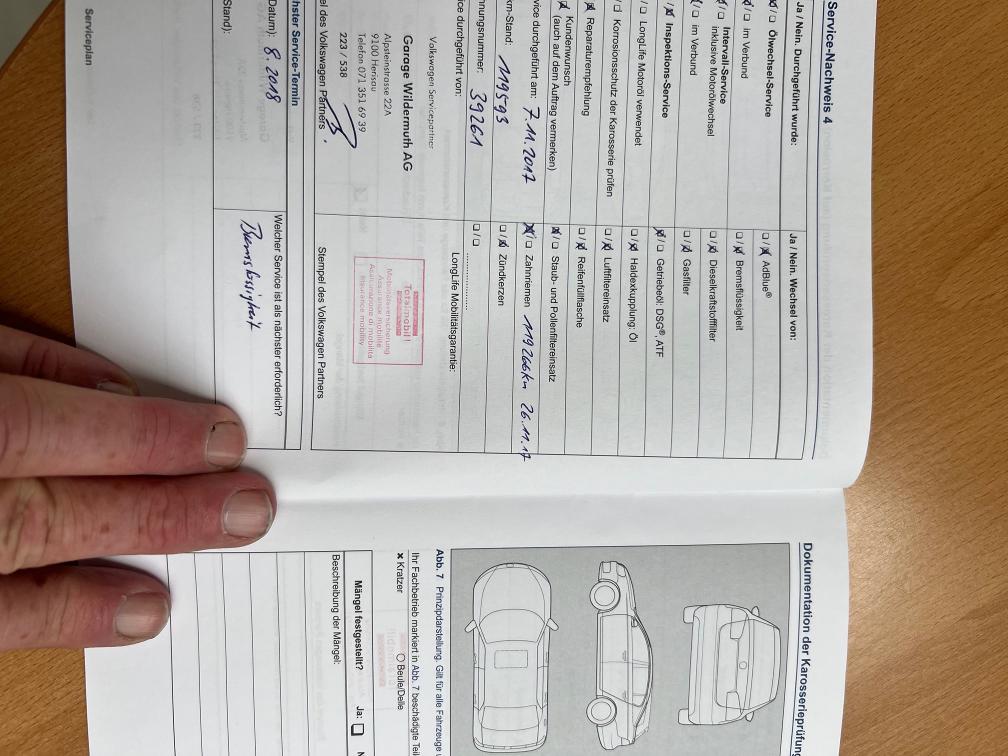 Service-Nachweis 4
Ja / Nein. Durchgeführt wurde:
Ölwechsel-Service
im Verbund
Intervall-Service
inklusive Motorölwechsel
im Verbund
Inspektions-Service
LongLife Motoröl verwendet
Korrosionsschutz der Karosserie prüfen
Reparaturempfehlung
Kundenwunsch
(auch auf dem Auftrag vermerken)
durchgeführt am: 7.11.2017
km-Stand: 119593
39261
durchgeführt von:
Volkswagen Servicepartner
Garage Wildermuth AG
Alpsteinstrasse 22A
9100 Herisau
Telefon 071 351 69 39
223 / 538
des Volkswagen Partners
Ja / Nein. Wechsel von:
☐ / ☒ AdBlue®
☐ / ☒ Bremsflüssigkeit
☐ / ☒ Dieselkraftstofffilter
☐ / ☒ Gasfilter
☒ / ☐ Getriebeöl: DSG®, ATF
☐ / ☒ Haldexkupplung: Öl
☐ / ☒ Luftfiltereinsatz
☐ / ☒ Reifenfüllflasche
☒ / ☐ Staub- und Pollenfiltereinsatz
☒ / ☐ Zahnriemen 119266km 26.11.17
☐ / ☒ Zündkerzen
☐ / ☐ ....................
LongLife Mobilitätsgarantie:
Totalmobil!
Mobilitätsversicherung
Assurance mobilité
Assicurazione di mobilità
Insurance mobility
Stempel des Volkswagen Partners
Service-Termin
Datum): 8.2018
Stand):
Welcher Service ist als nächster erforderlich?
Bremsflüssigkeit
Serviceplan
Dokumentation der Karosserieprüfung
Abb. 7 Prinzipdarstellung. Gilt für alle Fahrzeuge
Ihr Fachbetrieb markiert in Abb. 7 beschädigte
× Kratzer
○ Beule/Delle
Mängel festgestellt?
Ja: ☐
Beschreibung der Mängel: